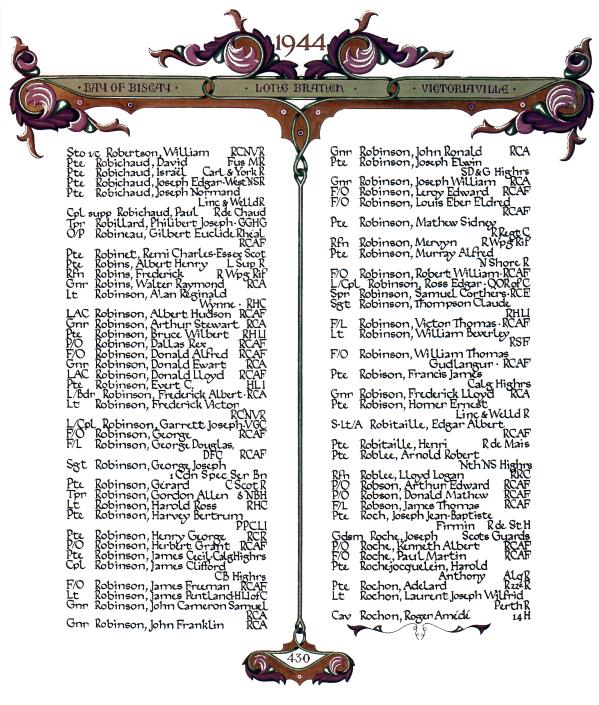 1944
· BAY OF BISCAY · LONG BRANCH · VICTORIAVILLE ·
Sto 1/c Robertson, William RCNVR
Pte Robichaud, David Fus MR
Pte Robichaud, Israël Carl & York R
Pte Robichaud, Joseph Edgar·West NSR
Pte Robichaud, Joseph Normand
Linc & Welld R
Cpl supp Robichaud, Paul R de Chaud
Tpr Robillard, Philibert Joseph·GGHG
O/P Robineau, Gilbert Euclide Rhéal
RCAF
Pte Robinet, Remi Charles·Essex Scot
Pte Robins, Albert Henry L Sup R
Rfn Robins, Frederick R Wpg Rif
Gnr Robins, Walter Raymond RCA
Lt Robinson, Alan Reginald
Wynne · RHC
LAC Robinson, Albert Hudson RCAF
Gnr Robinson, Arthur Stewart RCA
Pte Robinson, Bruce Wilbert RHLI
P/O Robinson, Dallas Rex RCAF
F/O Robinson, Donald Alfred RCAF
Gnr Robinson, Donald Ewart RCA
LAC Robinson, Donald Lloyd RCAF
Pte Robinson, Evert C. HLI
L/Bdr Robinson, Frederick Albert·RCA
Lt Robinson, Frederick Victor
RCNVR
L/Cpl Robinson, Garrett Joseph·VGC
F/O Robinson, George RCAF
F/L Robinson, George Douglas,
DFC RCAF
Sgt Robinson, George Joseph
1 Cdn Spec Ser Bn
Pte Robinson, Gerard C Scot R
Tpr Robinson, Gordon Allen 8 NBH
Lt Robinson, Harold Ross RHC
Pte Robinson, Harvey Bertrum
PPCLI
Pte Robinson, Henry George RCR
P/O Robinson, Herbert Grant RCAF
Pte Robinson, James Cecil·Calg Highrs
Cpl Robinson, James Clifford
CB Highrs
F/O Robinson, James Freeman RCAF
Lt Robinson, James Pentland·HLI of C
Gnr Robinson, John Cameron Samuel
RCA
Gnr Robinson, John Franklin RCA
Gnr Robinson, John Ronald RCA
Pte Robinson, Joseph Elwin
SD & G Highrs
Gnr Robinson, Joseph William RCA
F/O Robinson, Leroy Edward RCAF
F/O Robinson, Louis Eber Eldred
RCAF
Pte Robinson, Mathew Sidney
R Regt C
Rfn Robinson, Mervyn R Wpg Rif
Pte Robinson, Murray Alfred
N Shore R
F/O Robinson, Robert William·RCAF
L/Cpl Robinson, Ross Edgar·QOR of C
Spr Robinson, Samuel Corthers·RCE
Sgt Robinson, Thompson Claude
RHLI
F/L Robinson, Victor Thomas·RCAF
Lt Robinson, William Beverley
RSF
F/O Robinson, William Thomas
Gudlangur · RCAF
Pte Robison, Francis James
Calg Highrs
Gnr Robison, Frederick Lloyd RCA
Pte Robison, Homer Ernest
Linc & Welld R
S-Lt/A Robitaille, Edgar Albert
RCAF
Pte Robitaille, Henri R de Mais
Pte Roblee, Arnold Robert
Nth NS Highrs
Rfn Roblee, Lloyd Logan RRC
P/O Robson, Arthur Edward RCAF
P/O Robson, Donald Mathew RCAF
F/L Robson, James Thomas RCAF
Pte Roch, Joseph Jean-Baptiste
Firmin R de St H
Gdsm Roche, Joseph Scots Guards
P/O Roche, Kenneth Albert RCAF
F/O Roche, Paul Martin RCAF
Pte Rochejocquelein, Harold
Anthony Alq R
Pte Rochon, Adelard R22eR
Lt Rochon, Laurent Joseph Wilfrid
Perth R
Cav Rochon, Roger Amédé 14 H
430